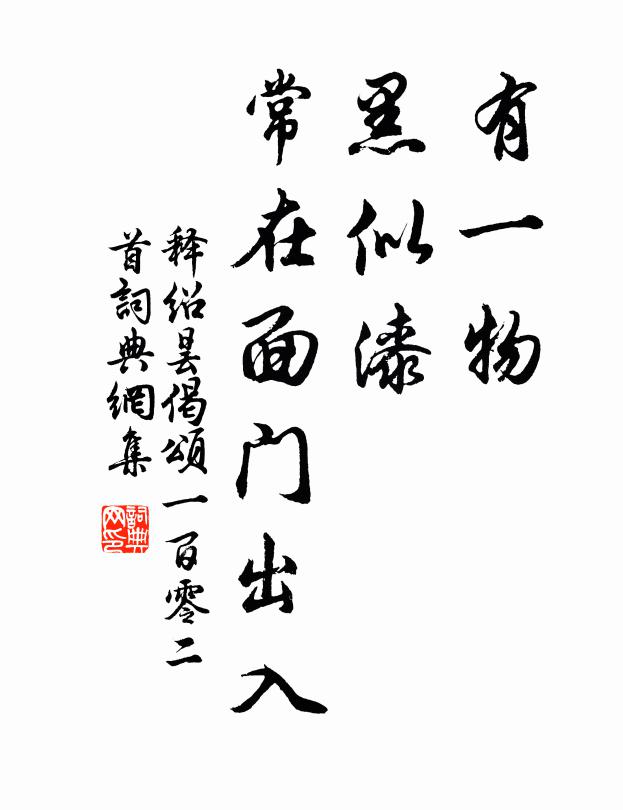 有一物
黑似漆
常在面门出入
释绍昙偈頌一百零二
首詞典網集
詞典网印